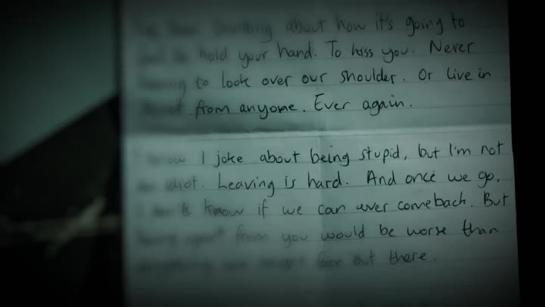 about how it's going to
hold your hand. To kiss you. Never
to look over our shoulder. Or live in
from anyone. Ever again.
I joke about being stupid, but I'm not
idiot. Leaving is hard. And once we go,
I don't know if we can ever comeback. But
from you would be worse than
out there.